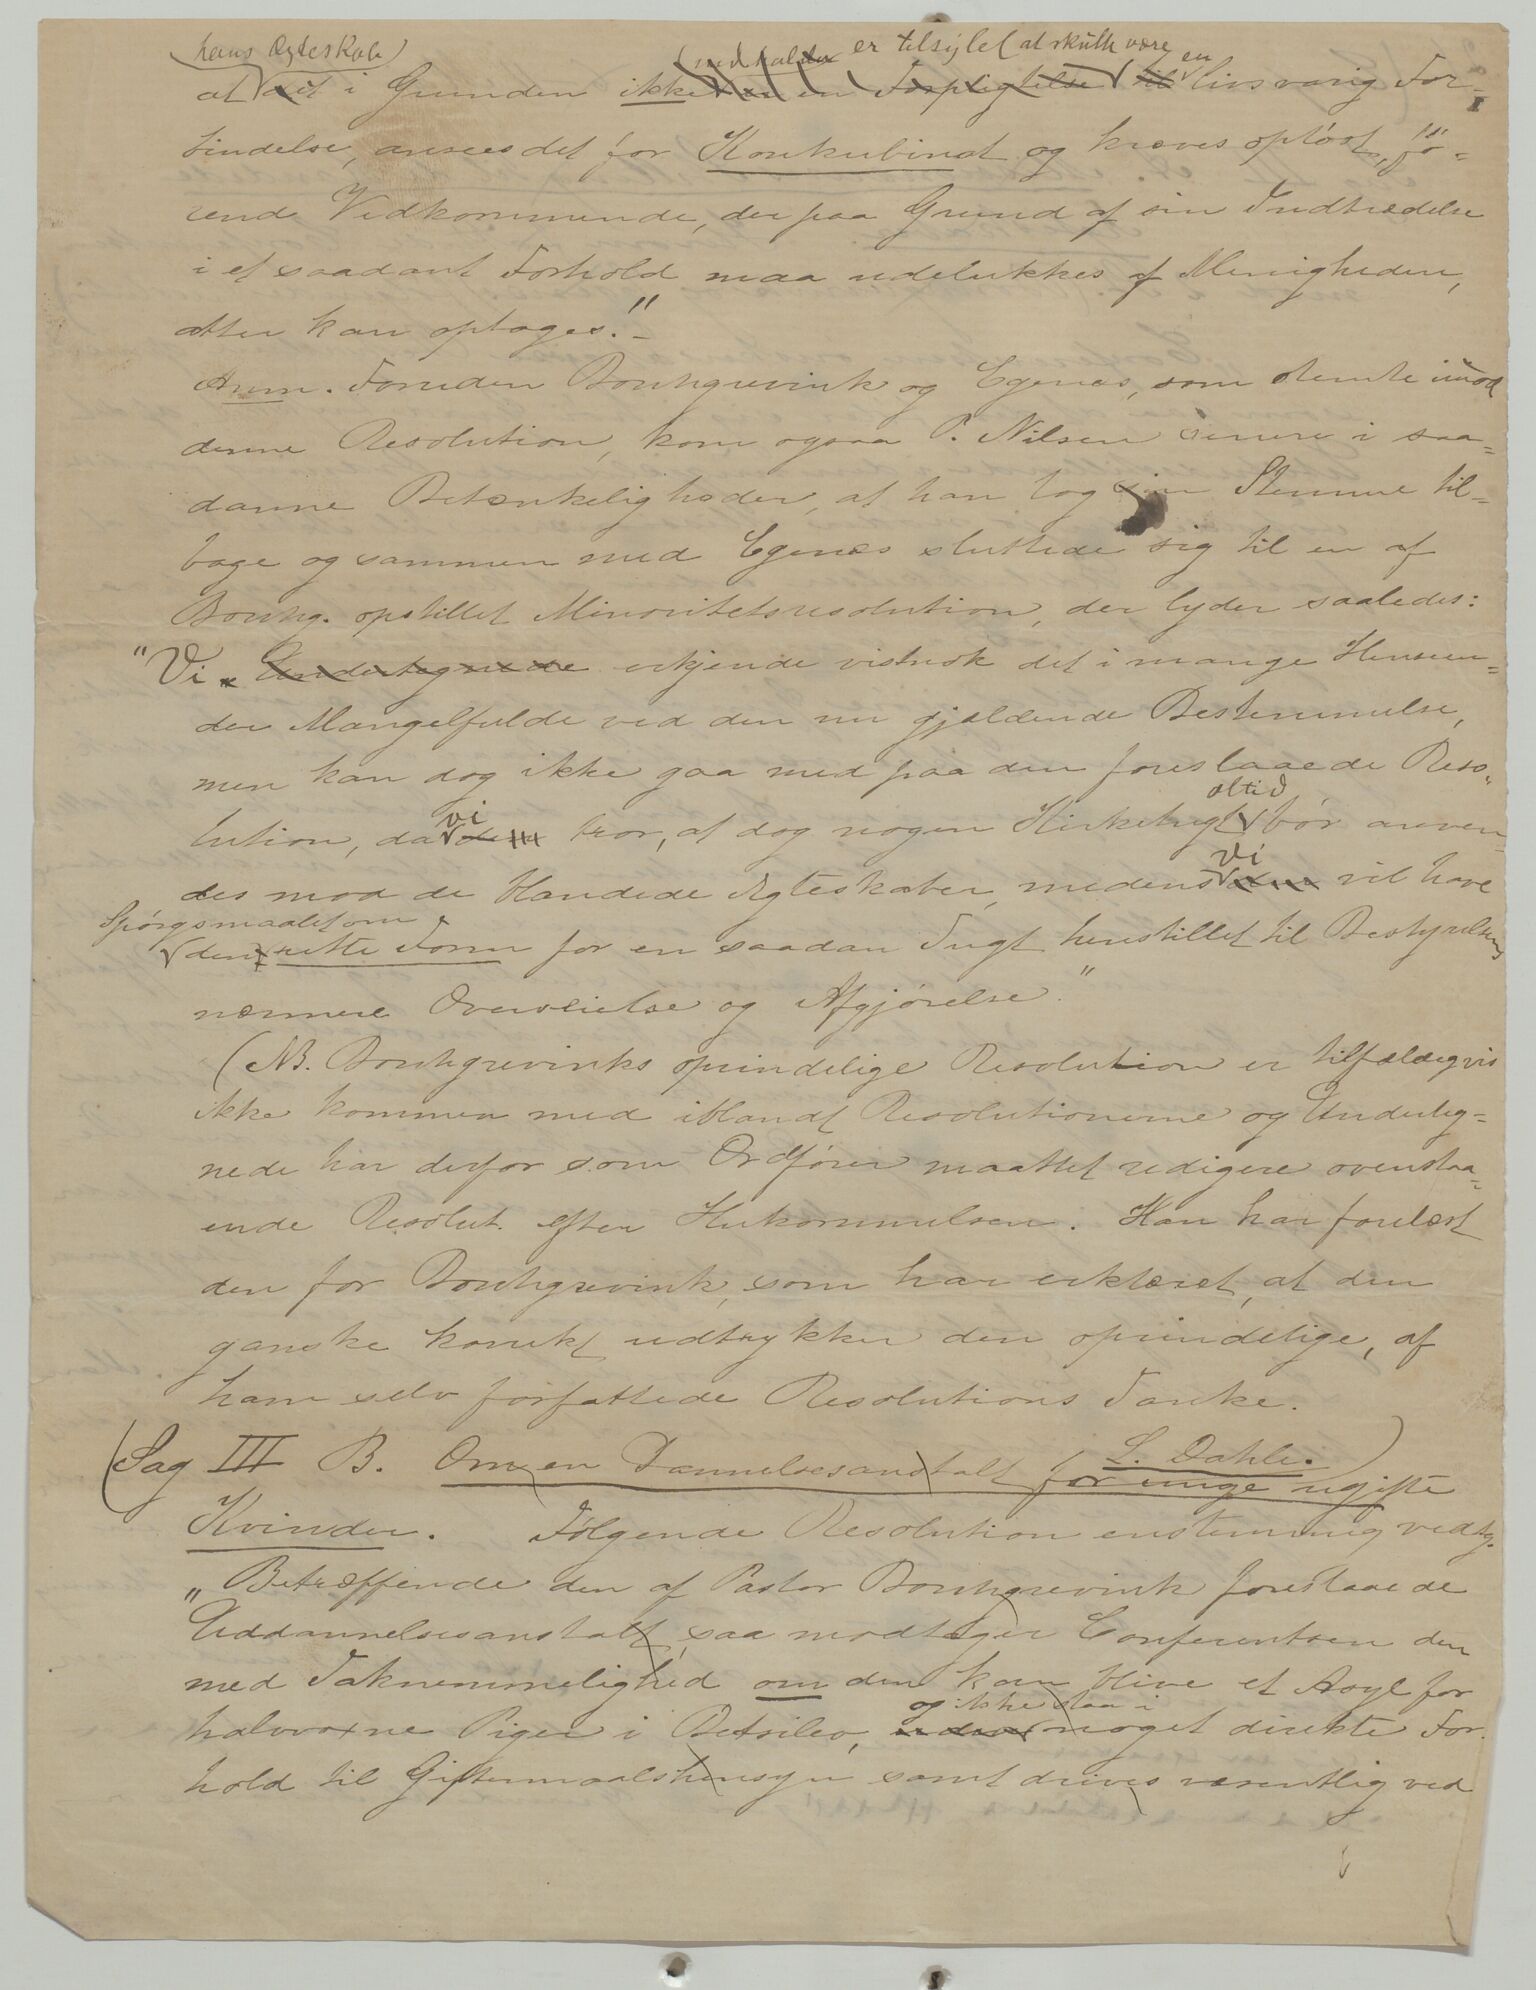 hans Ægteskab
er tilsigtet at skulle være en
at i Grunden ikke en Forpligtelse til livsvarig For-
bindelse, ansees det for Konkubinat og kræves opløst, fø-
rend Vedkommende, der paa Grund af sin Indtrædelse
i et saadant Forhold maa udelukkes af Menigheden,
atter kan optages."
Anm. Foruden Borchgrevink og Egenes, som stemte imod
denne Resolution, kom ogsaa P. Nilsen senere i saa-
danne Betænkeligheder, at han tog sin Stemme til-
bage og sammen med Egenes sluttede sig til en af
Borchg. opstillet Minoritetsresolution, der lyder saaledes:
"Vi Undertegnede erkjende vistnok det i mange Henseen-
der Mangelfulde ved den nu gjældende Bestemmelse,
men kan dog ikke gaa med paa den foreslaaede Reso-
altid
vi
lution, da tror, at dog nogen Kirketugt bør anven-
vi
des mod de blandede Ægteskaber, medens vil have
Spørgsmaalet om
den rette Form for en saadan Tugt henstillet til Bestyrelsens
nærmere Overveielse og Afgjørelse."
(NB. Borchgrevinks oprindelige Resolution er tilfældigvis
ikke kommen med iblandt Resolutionerne og Underteg-
nede har derfor som Ordfører maattet redigere ovenstaa-
ende Resolut. efter Hukommelsen. Han har forelæst
den for Borchgrevink, som har erklæret, at den
ganske korrekt udtrykker den oprindelige, af
ham selv forfattede Resolutions Tanke.
L. Dahle.)
Sag III B. Om en Dannelsesanstalt for unge ugifte
Kvinder. Følgende Resolution enstemmig vedtg.
"Betræffende den af Pastor Borchgrevink foreslaaede
Uddannelsesanstalt, saa modtager Conferentsen den
med Taknemmelighed om den kan blive et Asyl for
og ikke staa i
halvvoxne Piger i Betsileo, uden noget direkte For-
hold til Giftermaalshensyn samt drives væsentlig ved